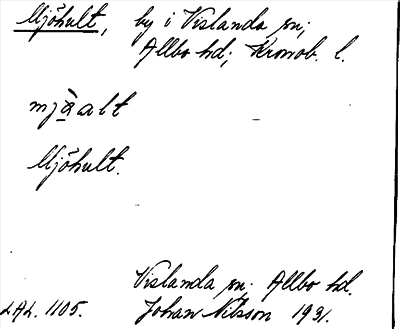 Mjöhult, by i Vislanda sn;
Allbo hd; Kronob. l.
mjàalt
Mjöhult.
Vislanda sn. Allbo hd.
LAL. 1105. Johan Nilsson 1931.